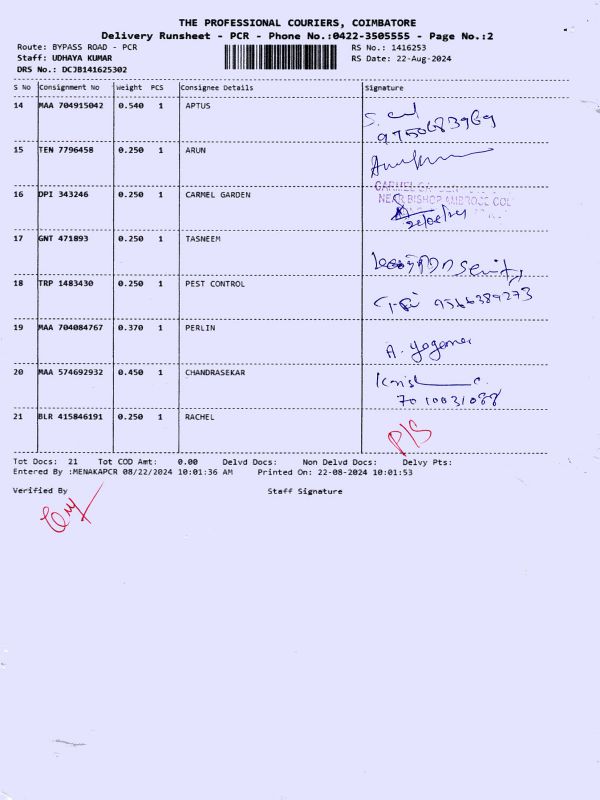 THE PROFESSIONAL COURIERS, COIMBATORE
Delivery Runsheet - PCR - Phone No.:0422-3505555 - Page No.:2
Route: BYPASS ROAD - PCR RS No.: 1416253
Staff: UDHAYA KUMAR RS Date: 22-Aug-2024
DRS No.: DCJB141625302
S No Consignment No Weight PCS Consignee Details Signature
14 MAA 704915042 0.540 1 APTUS
9750683969
15 TEN 7796458 0.250 1 ARUN
16 DPI 343246 0.250 1 CARMEL GARDEN
CARMEL
NEAR BISHOP AMBROSE COL
17 GNT 471893 0.250 1 TASNEEM
18 TRP 1483430 0.250 1 PEST CONTROL
9566389273
19 MAA 704084767 0.370 1 PERLIN
A.
20 MAA 574692932 0.450 1 CHANDRASEKAR
7010031088
21 BLR 415846191 0.250 1 RACHEL
P/S
Tot Docs: 21 Tot COD Amt: 0.00 Delvd Docs: Non Delvd Docs: Delvy Pts:
Entered By :MENAKAPCR 08/22/2024 10:01:36 AM Printed On: 22-08-2024 10:01:53
Verified By Staff Signature